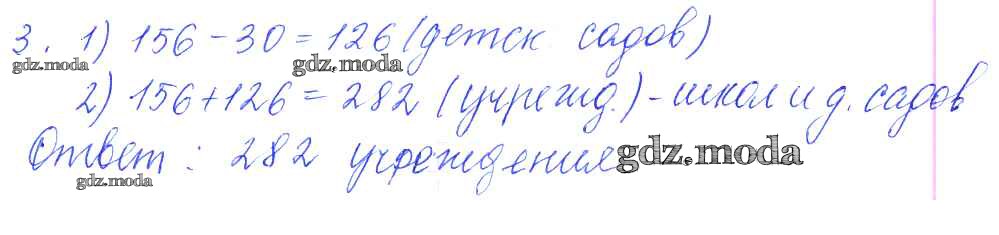 3. 1) 156 - 30 = 126 (детск. садов)
gdz.moda gdz.moda
2) 156 + 126 = 282 (учрежд.) - школ и д. садов
Ответ: 282 учреждения gdz.moda
gdz.moda